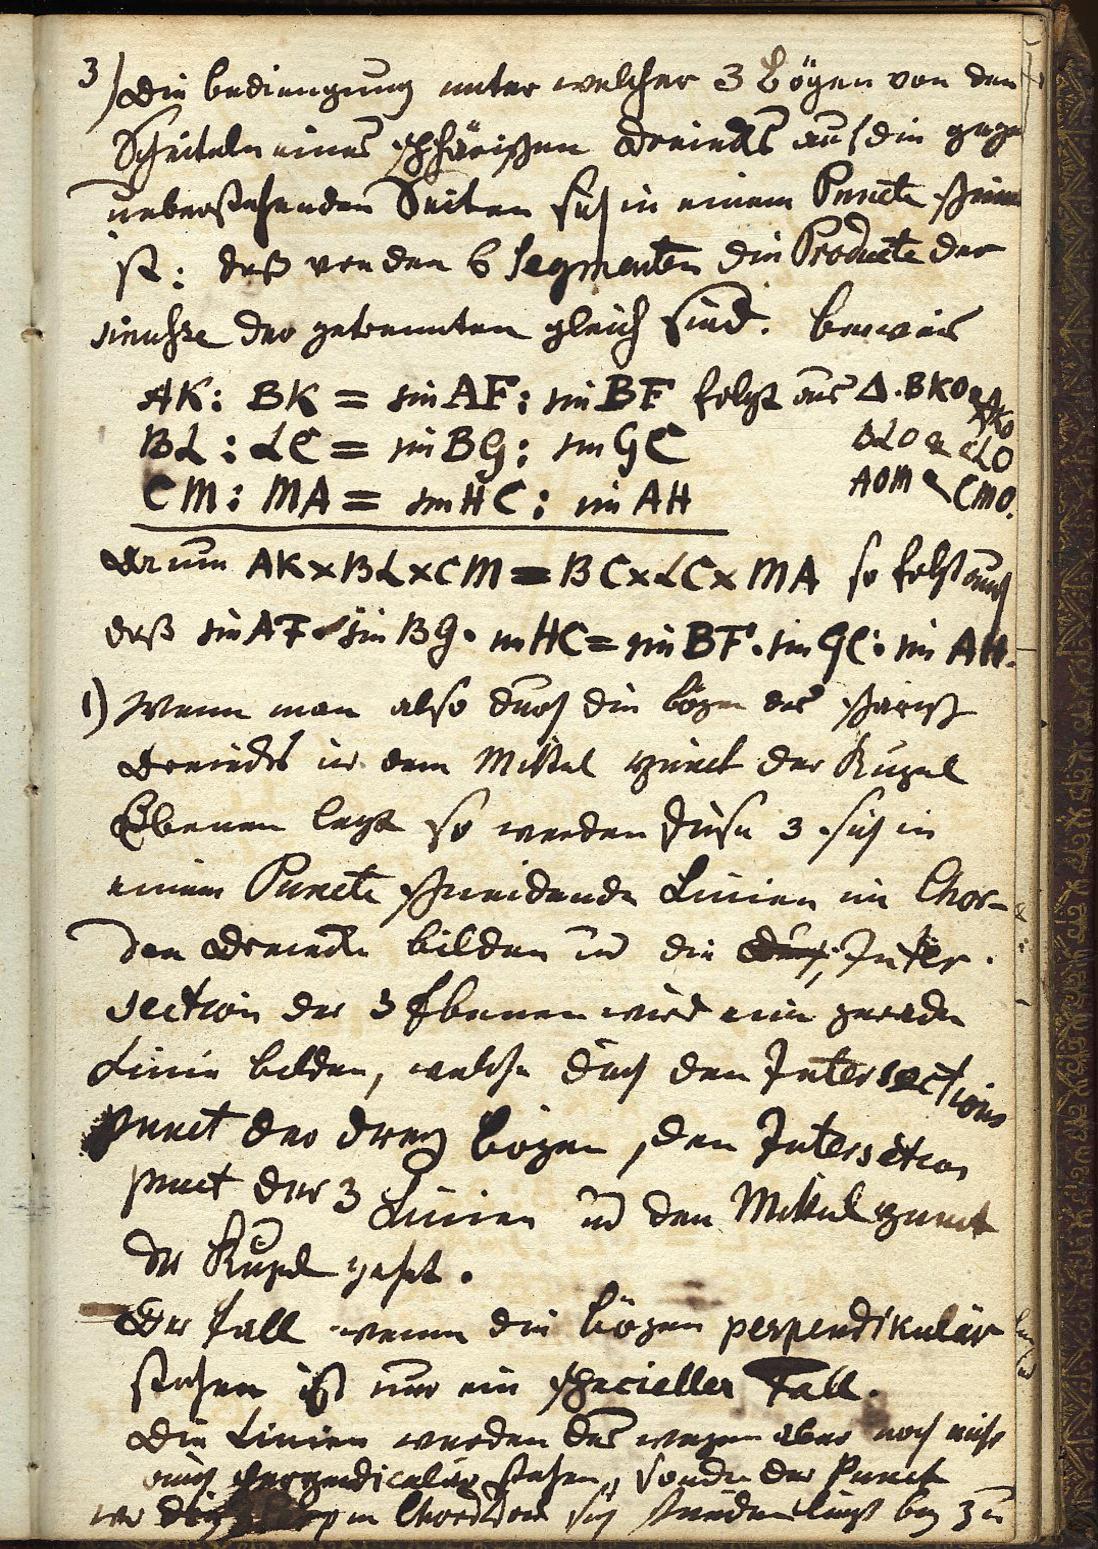 3) Die bedingung unter welcher 3 Bögen von den
Scheiteln eines sphärischen Dreiecks auf die gege
ueberstehenden Seiten sich in einem Puncte schnei
ist: daß von den 6 Segmenten die Producte der
sinusse der getrennten gleich sind. beweis
AK : BK = sin AF : sin BF folgt aus Δ. BKO & AKO
BL : LC = sin BG : sin GC BLO & CLO
CM : MA = sin HC : sin AH AOM & CMO.
Da nun AK × BL × CM = BC × LC × MA so folgt auch
daß sin AF · sin BG · sin HC = sin BF · sin GC · sin AH.
1) Wenn man also durch die bögen des sphärisch
Dreiecks in dem Mittel punct der Kugel
Ebenen legt so werden diese 3 sich in
einem Puncte schneidende Linien im Chor-
den Dreiecke bilden und die Inter-
section der 3 Ebenen wird eine gerade
Linie bilden, welche durch den Intersections
punct der drey bögen, den Intersection
punct der 3 Linien und den Mittelpunct
der Kugel geht.
Der fall wenn die bögen perpendikulär
stehen ist nur ein specieller Fall.
Die Linien werden deswegen aber noch nicht
auch perpendiculär stehen, sondern der Punct
wo die im sich schneiden liegt bey 3